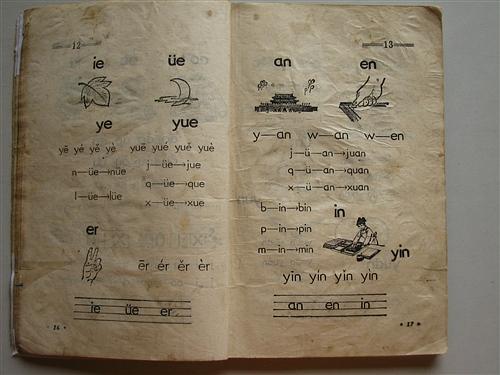 12
ie üe
ye yue
yē yé yě yè yuē yué yuě yuè
n—üe→nüe j—üe→jue
l—üe→lüe q—üe→que
x—üe→xue
er
ēr ér ěr èr
ie üe er
16
13
an en
y—an w—an w—en
j—ü—an→juan
q—ü—an→quan
x—ü—an→xuan
b—in→bin in
p—in→pin
m—in→min yin
yīn yín yǐn yìn
an en in
17